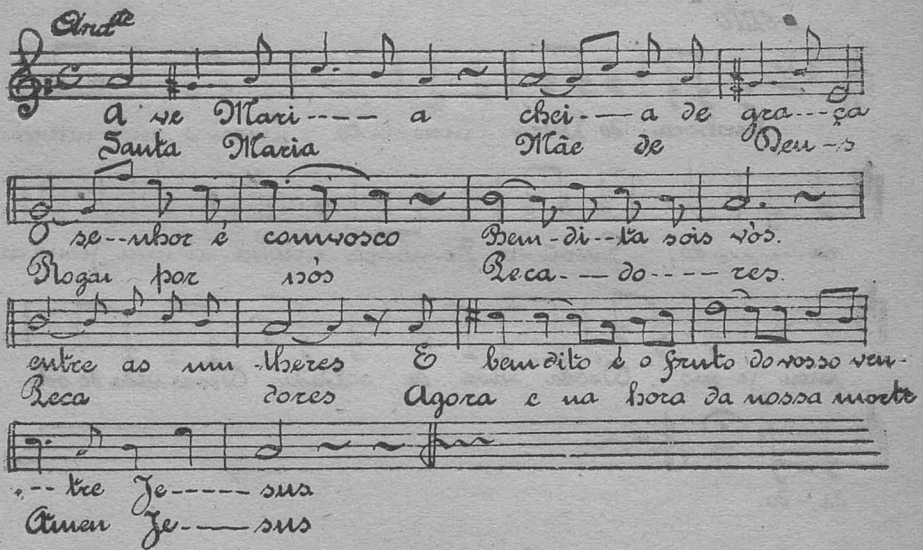 Andte
A ve Mari---- a chei-- --a de gra---ça
Santa Maria Mãe de Deu-s
O se--nhor é comvosco Bem-di--ta sois vós.
Rogai por nós Peca-- --do---- res.
entre as mu-lheres E bendito é o fruto do vosso ven-
Peca dores Agora e na hora da nossa morte
--- tre Je----- sus
Amen Je-- -- sus